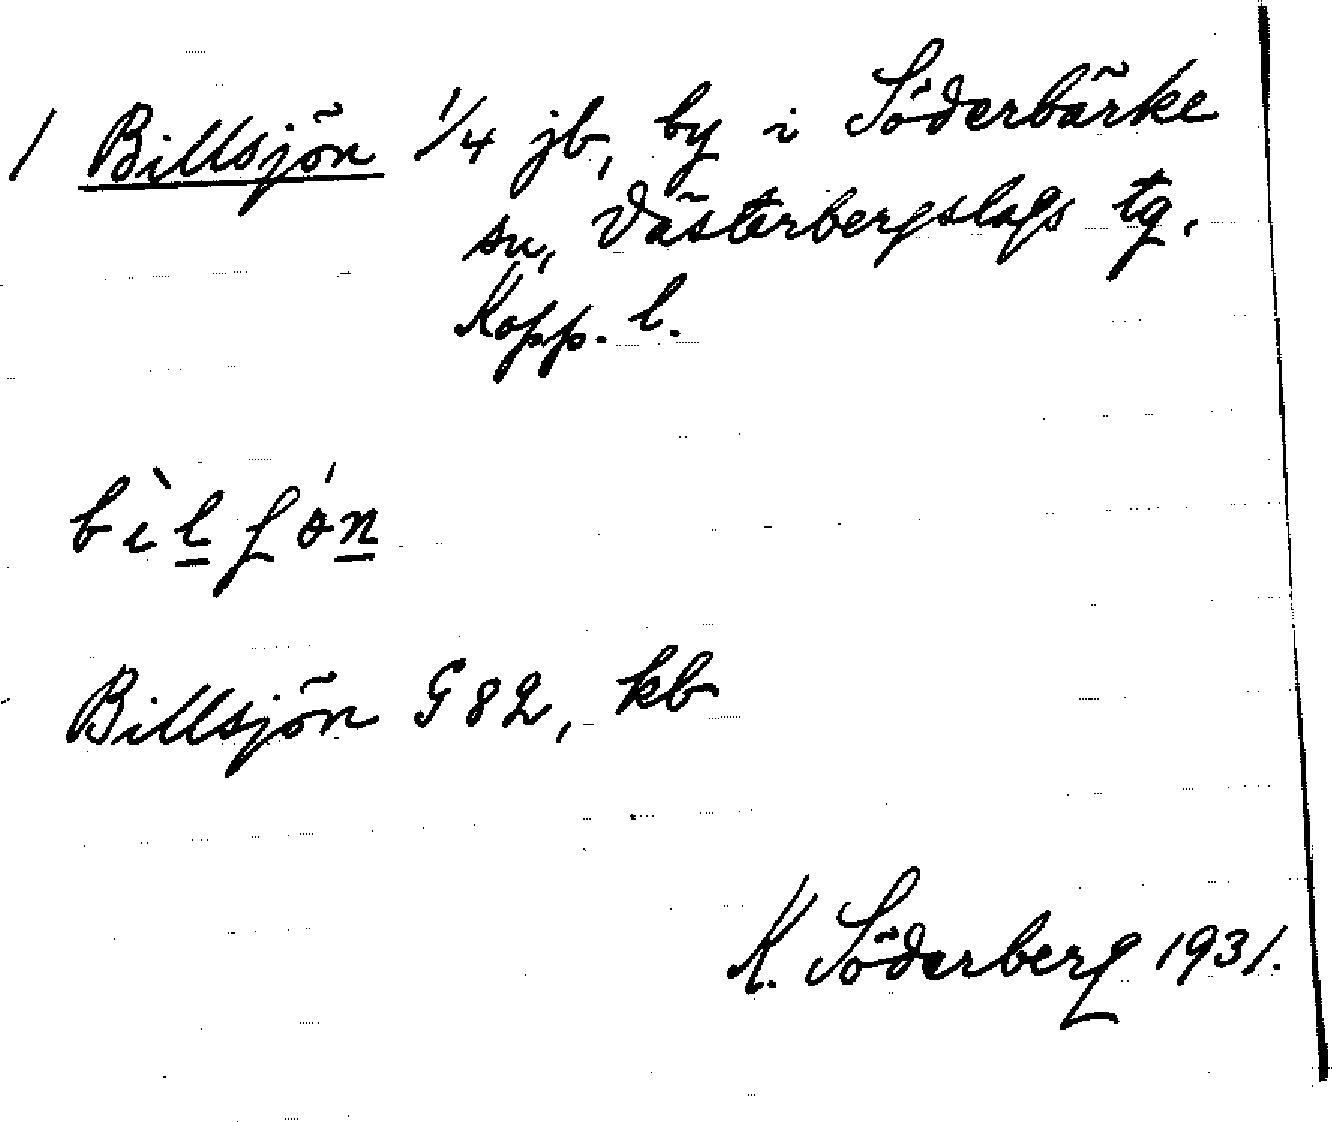 1 Billsjön 1/4 jb, by i Söderbärke
sn, Västerbergslags tg.
Kopp. l.
bìlʃón
Billsjön G82, kb
K. Söderberg 1931.